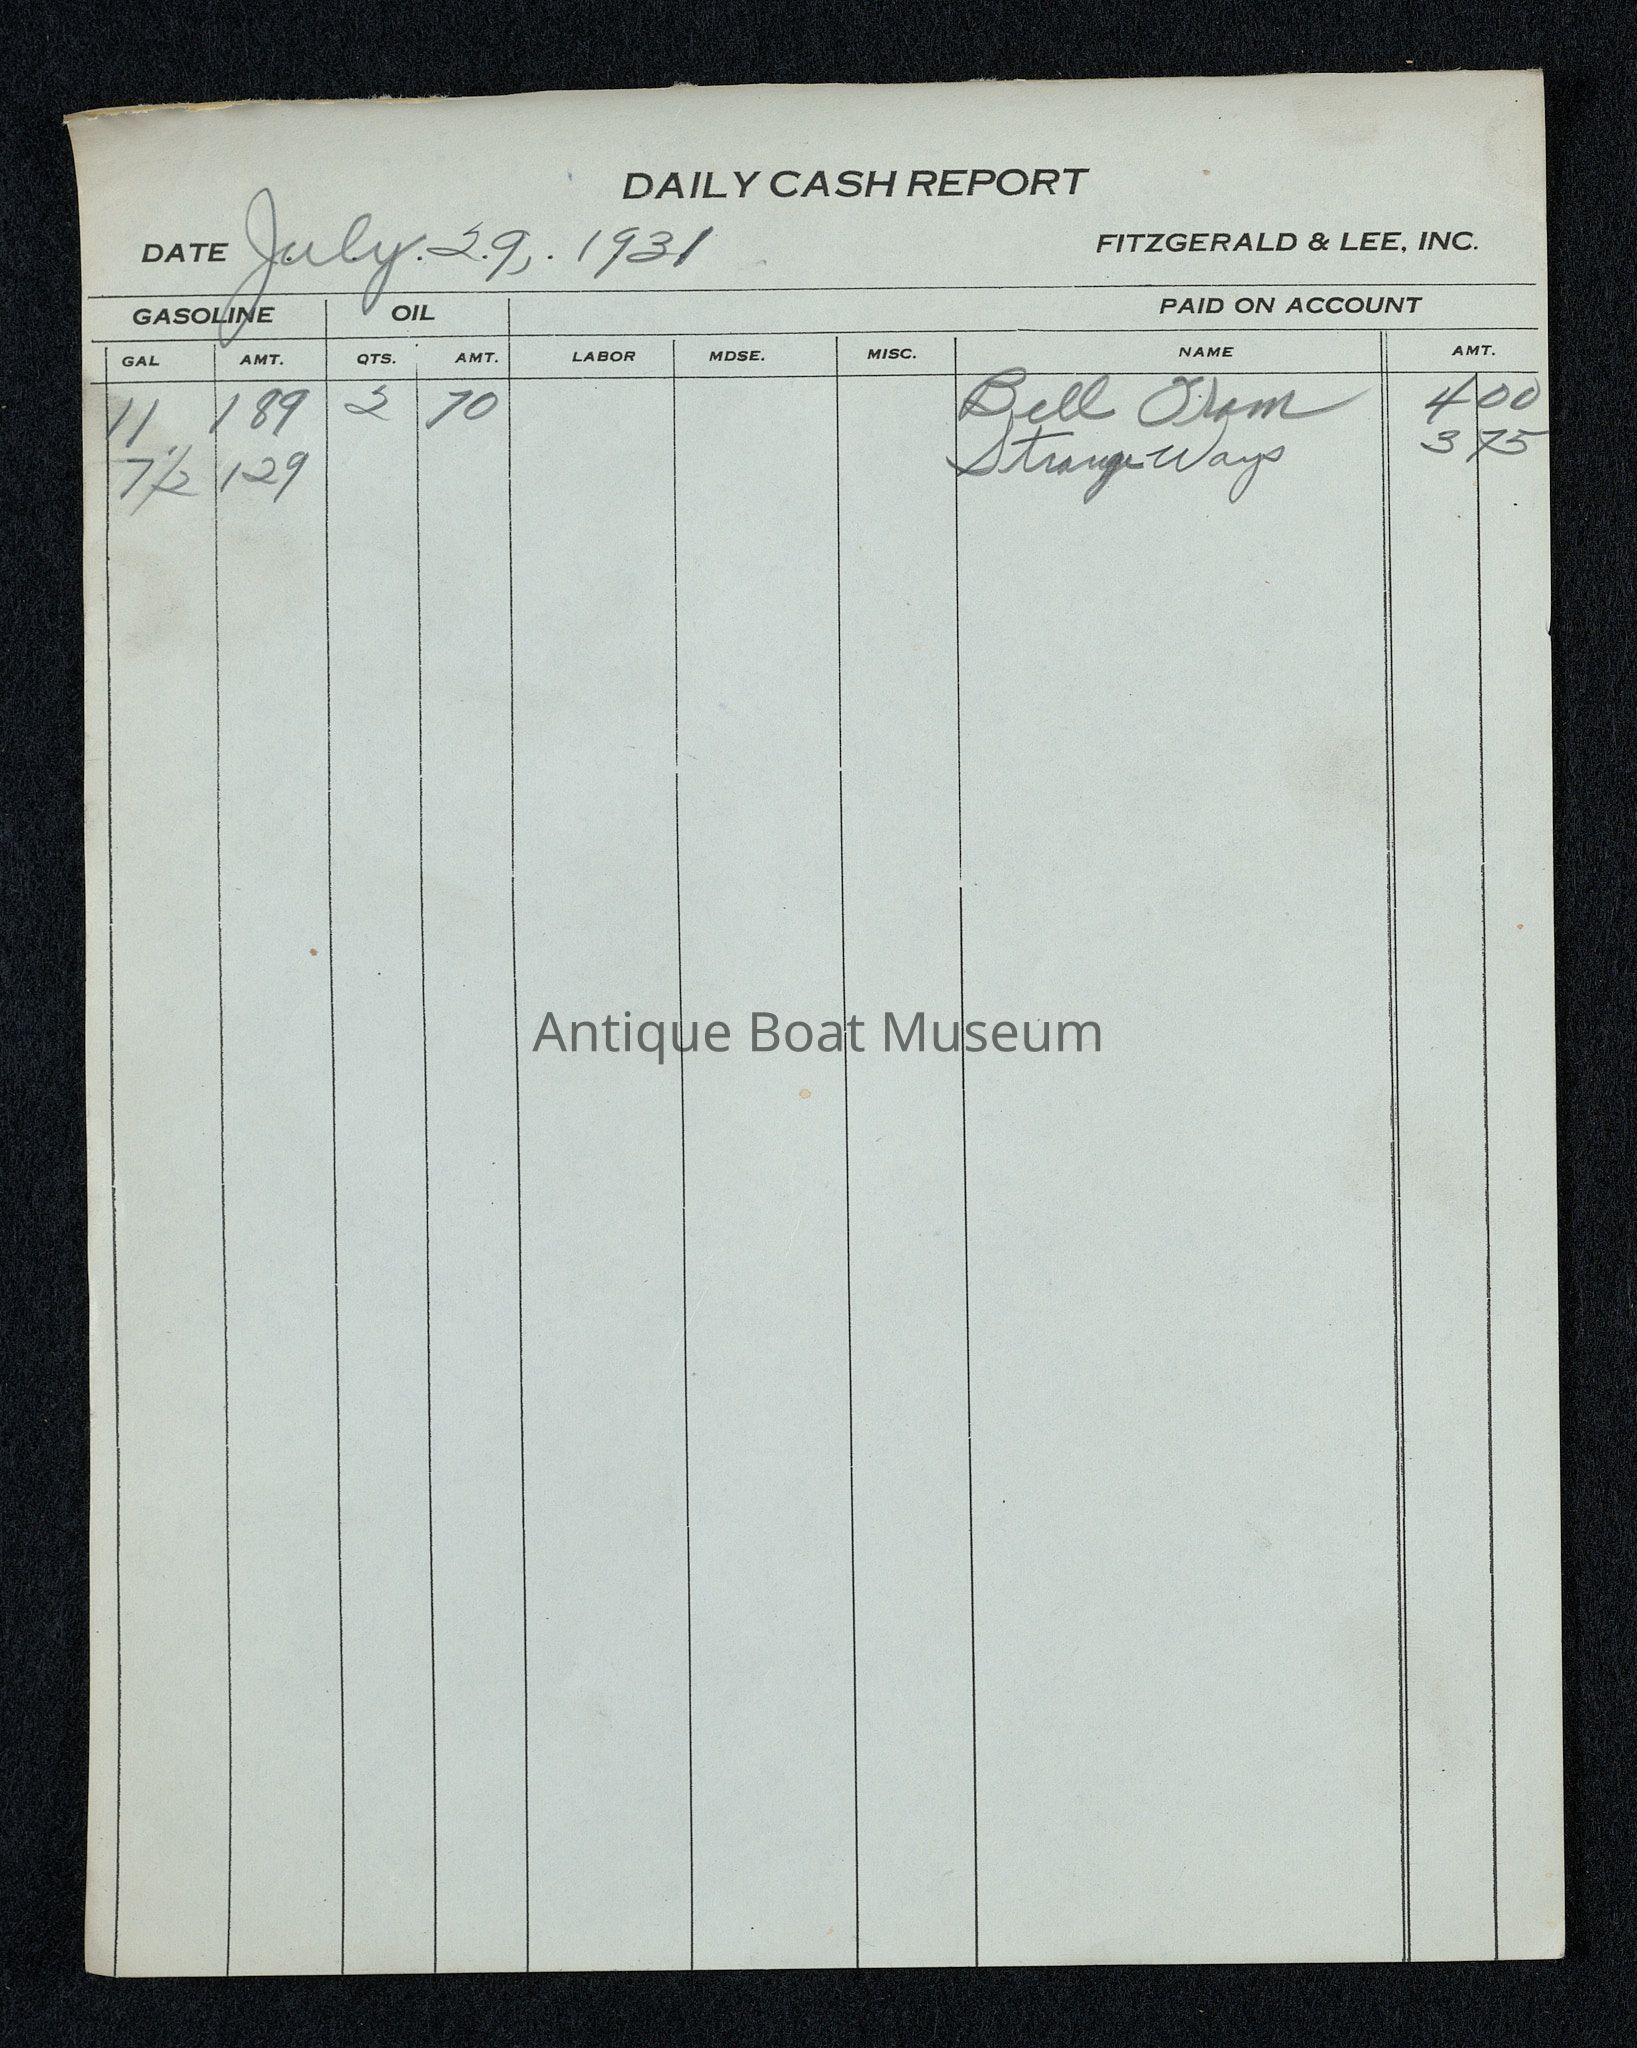 DAILY CASH REPORT
DATE July 29, 1931 FITZGERALD & LEE, INC.
GASOLINE OIL PAID ON ACCOUNT
GAL AMT. QTS. AMT. LABOR MDSE. MISC. NAME AMT.
11 1 89 2 70 Bell 4 00
7 1/2 1 29 Strange Ways 3 75
Antique Boat Museum